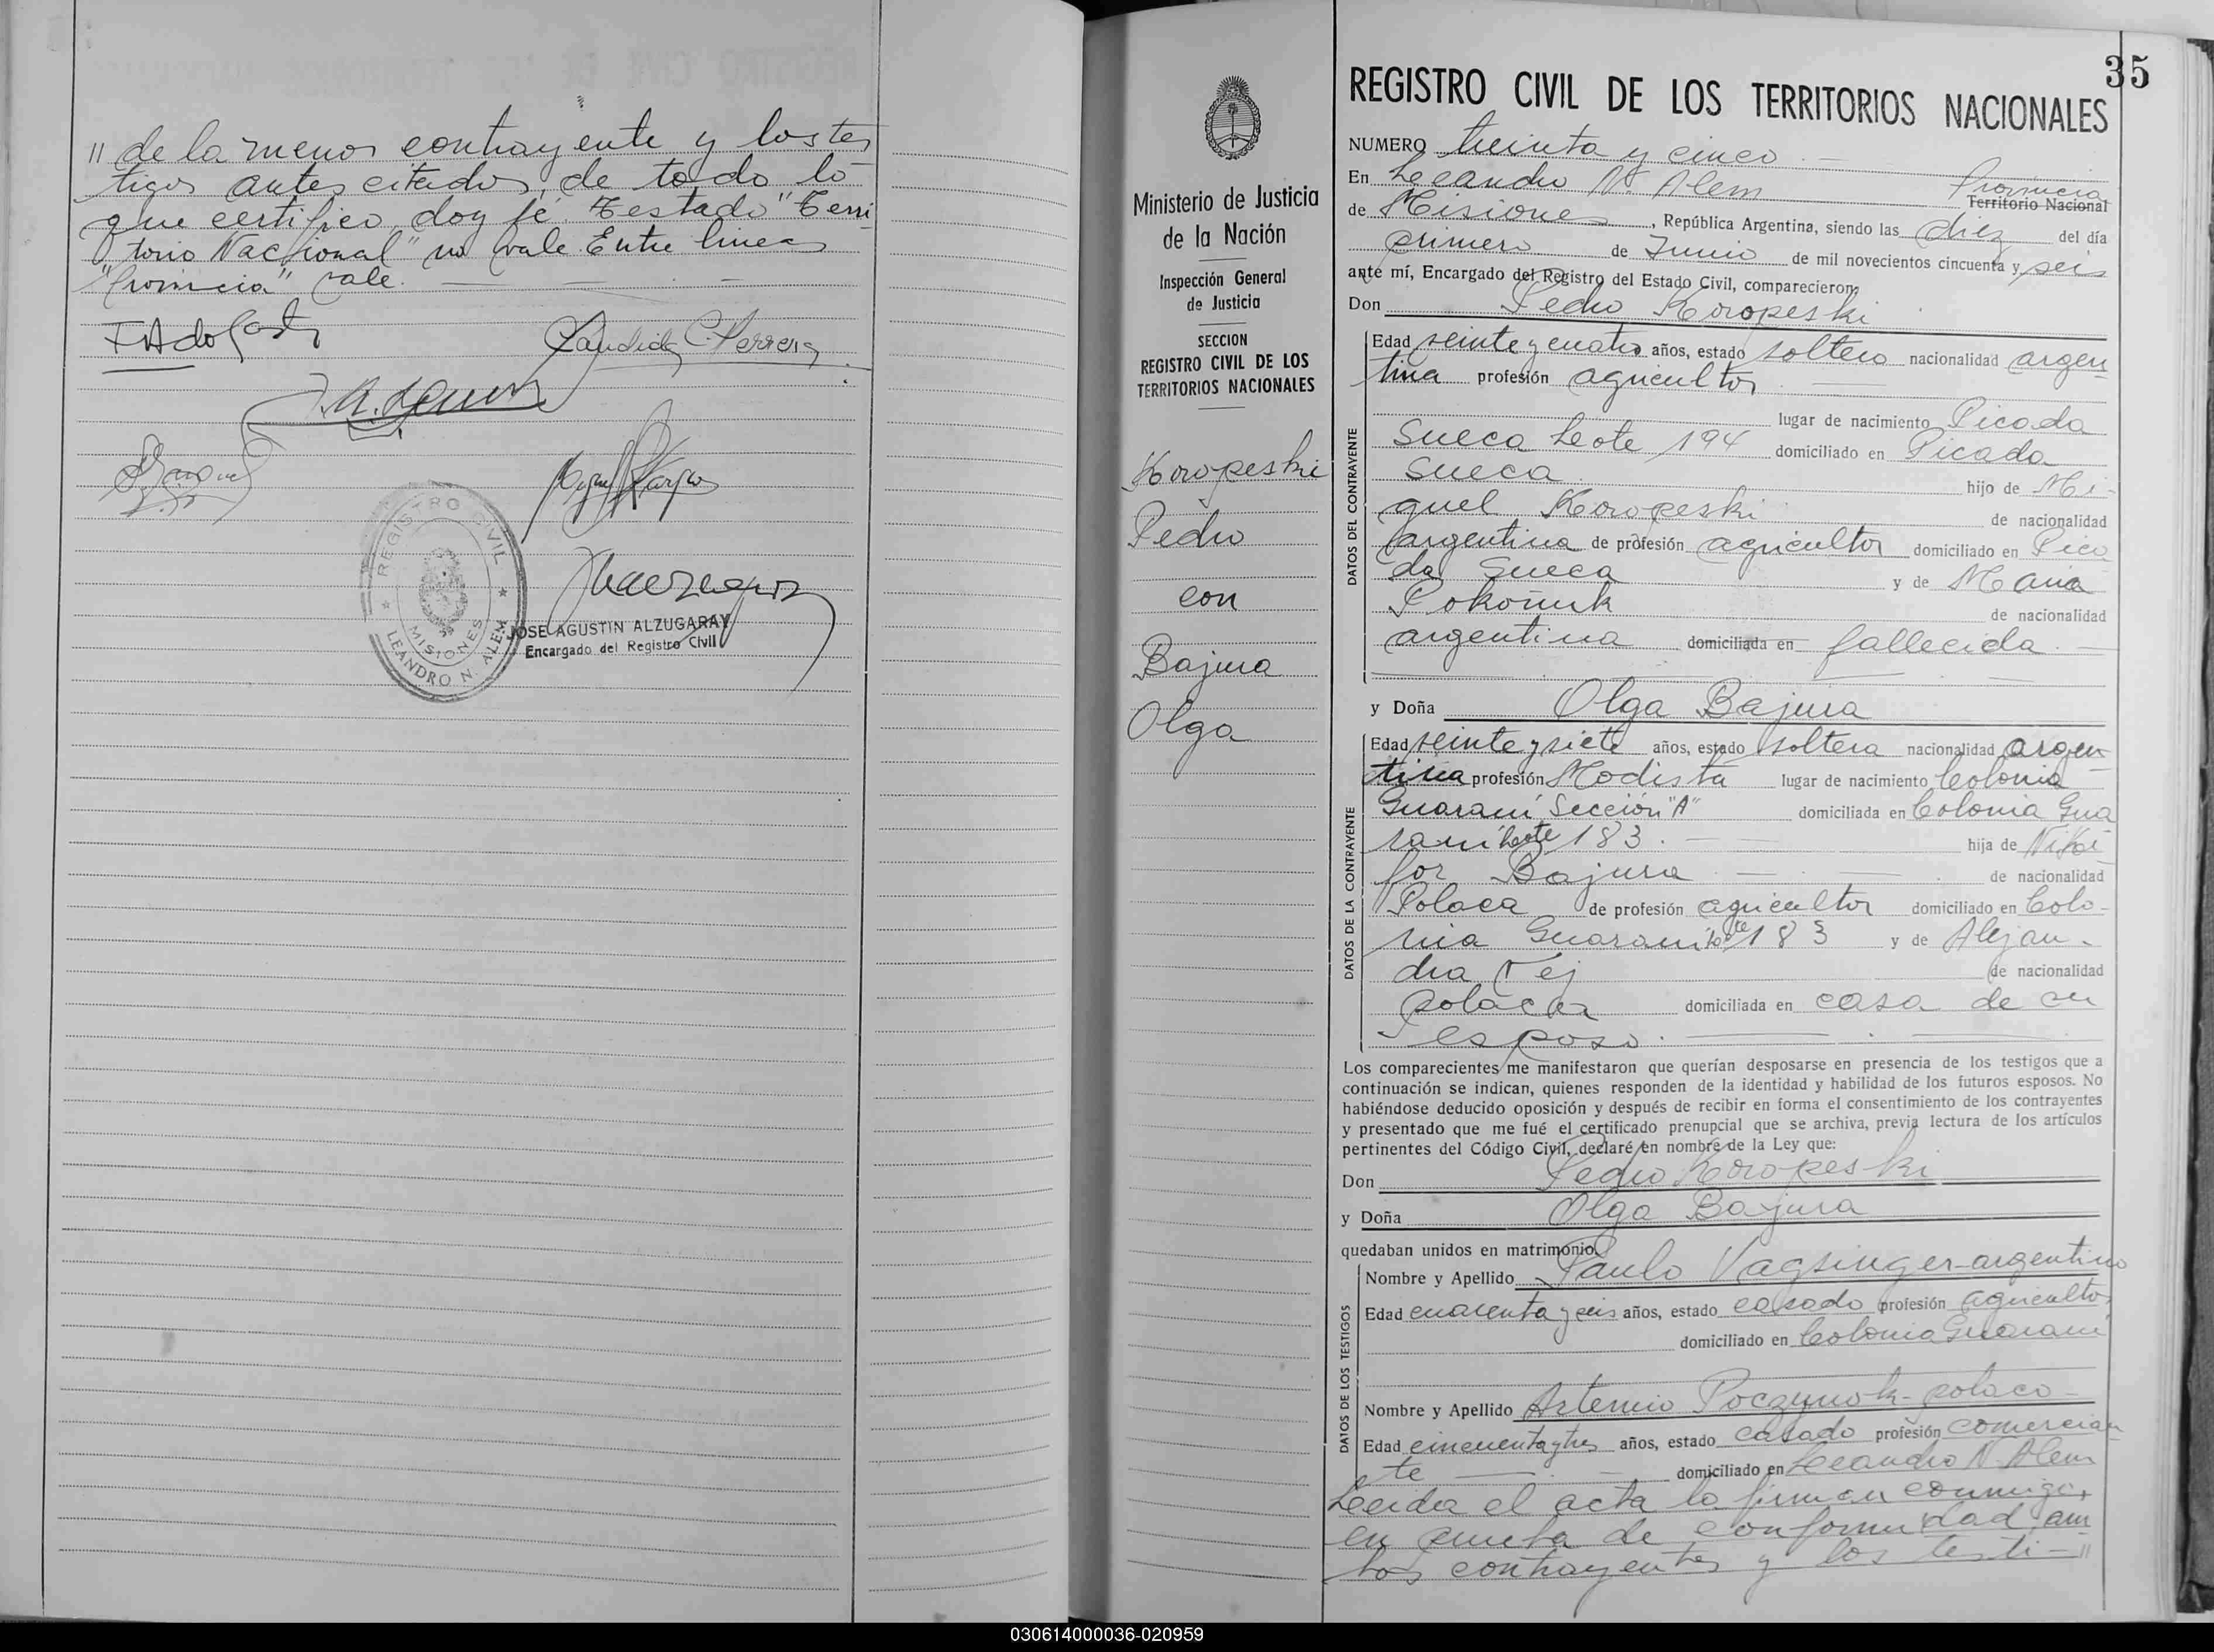 " de la menor contrayente y los tes
tigos antes citados, de todo lo
que certifico, doy fé. Testado "Terri
torio Nacional" no vale. Entre lineas
"Provincia" vale.
Candida C. Herrera
REGISTRO CIVIL
MISIONES
LEANDRO N. ALEM
JOSE AGUSTIN ALZUGARAY
Encargado del Registro Civil
35
Ministerio de Justicia
de la Nación
Inspección General
de Justicia
SECCION
REGISTRO CIVIL DE LOS
TERRITORIOS NACIONALES
Koropeski
Pedro
con
Bajura
Olga
REGISTRO CIVIL DE LOS TERRITORIOS NACIONALES
NUMERO treinta y cinco
En Leandro N. Alem Provincia
Territorio Nacional
de Misiones, República Argentina, siendo las diez del día
primero de Junio de mil novecientos cincuenta y seis
ante mí, Encargado del Registro del Estado Civil, comparecieron:
Don Pedro Koropeski
DATOS DEL CONTRAYENTE
Edad veinte y cuatro años, estado soltero nacionalidad argen
tina profesión agricultor
lugar de nacimiento Picada
Sueca Lote 194 domiciliado en Picada
Sueca hijo de Mi-
guel Koropeski de nacionalidad
argentina de profesión agricultor domiciliado en Pica
da Sueca y de Maria
de nacionalidad
argentina domiciliada en fallecida.
y Doña Olga Bajura
DATOS DE LA CONTRAYENTE
Edad veinte y siete años, estado soltera nacionalidad argen-
tina profesión Modista lugar de nacimiento Colonia
Guaraní Sección "A" domiciliada en Colonia Gua
raní Lote 183. hija de Niká
for Bajura de nacionalidad
Polaca de profesión agricultor domiciliado en Colo-
nia Guaraní Lote 183 y de Alejan-
dra Tej de nacionalidad
polaca domiciliada en casa de su
esposo.
Los comparecientes me manifestaron que querían desposarse en presencia de los testigos que a
continuación se indican, quienes responden de la identidad y habilidad de los futuros esposos. No
habiéndose deducido oposición y después de recibir en forma el consentimiento de los contrayentes
y presentado que me fué el certificado prenupcial que se archiva, previa lectura de los artículos
pertinentes del Código Civil, declaré en nombre de la Ley que:
Don Pedro Koropeski
y Doña Olga Bajura
quedaban unidos en matrimonio.
DATOS DE LOS TESTIGOS
Nombre y Apellido Paulo Vagsinger - argentino
Edad cuarenta y seis años, estado casado profesión agricultor
domiciliado en Colonia Guaraní
Nombre y Apellido Artemio Poczynok - polaco -
Edad cincuenta y tres años, estado casado profesión comercian
te domiciliado en Leandro N. Alem
Leida el acta la firman conmigo,
en prueba de conformidad am
bos contrayentes y los testi-"
030614000036-020959